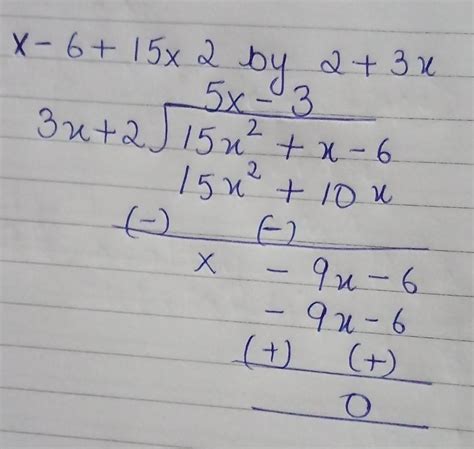 x - 6 + 15x 2 by 2 + 3x
5x - 3
3x+2 15x² + x - 6
15x² + 10x
(-) (-)
x - 9x - 6
- 9x - 6
(+) (+)
0